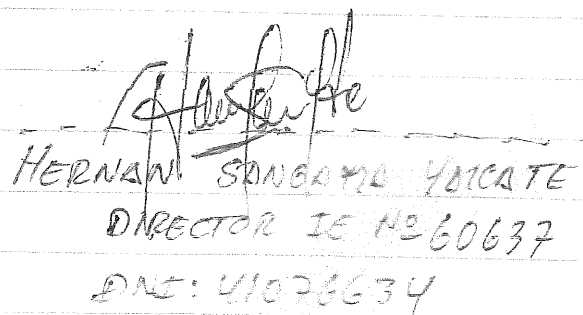 HERNAN SANGAMA YAICATE
DIRECTOR IE Nº 60637
DNI: 41076634